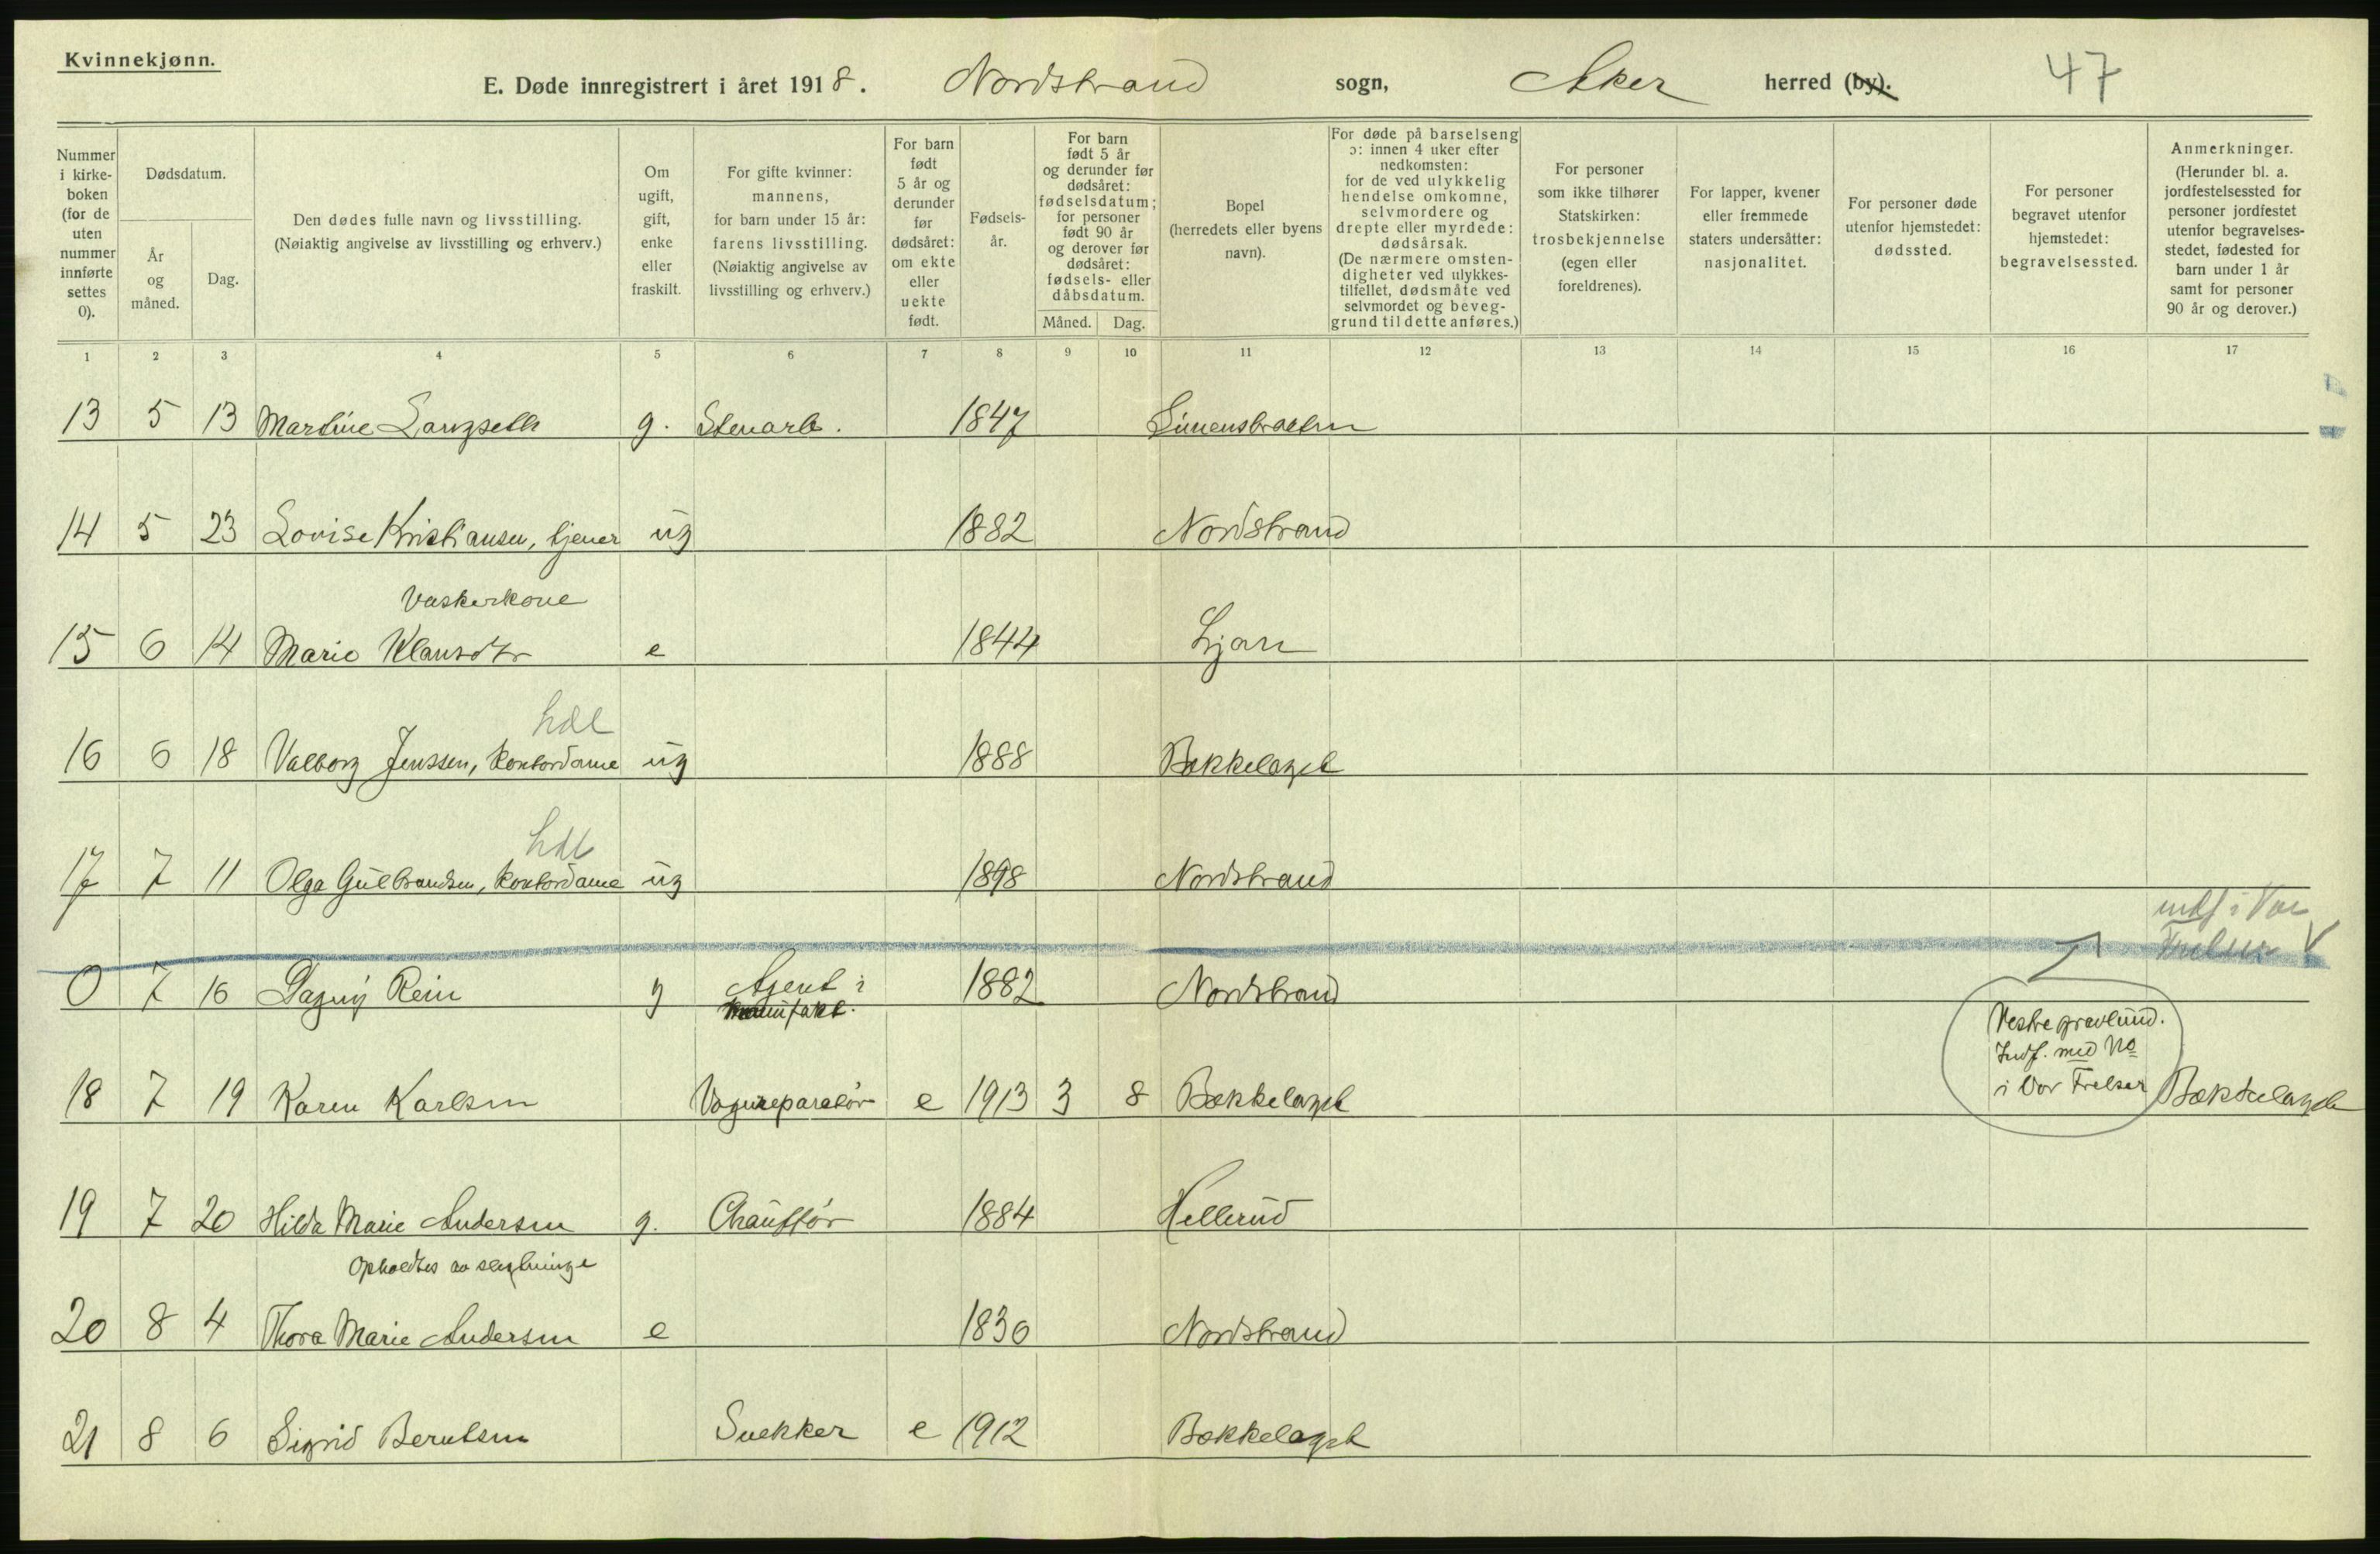 Kvinnekjønn.
E. Døde innregistrert i året 1918. Nordstrand sogn, Aker herred (by). 47
Nummer i kirke-boken (for de uten nummer innførte settes 0).
Dødsdatum.
År og måned.
Dag.
Den dødes fulle navn og livsstilling. (Nøiaktig angivelse av livsstilling og erhverv.)
Om ugift, gift, enke eller fraskilt.
For gifte kvinner: mannens, for barn under 15 år: farens livsstilling. (Nøiaktig angivelse av livsstilling og erhverv.)
For barn født 5 år og derunder før dødsåret: om ekte eller uekte født.
Fødsels-år.
For barn født 5 år og derunder før dødsåret: fødselsdatum; for personer født 90 år og derover før dødsåret: fødsels- eller dåbsdatum.
Måned. Dag.
Bopel (herredets eller byens navn).
For døde på barselseng ɔ: innen 4 uker efter nedkomsten: for de ved ulykkelig hendelse omkomne, selvmordere og drepte eller myrdede: dødsårsak. (De nærmere omsten-digheter ved ulykkes-tilfellet, dødsmåte ved selvmordet og beveg-grund til dette anføres.)
For personer som ikke tilhører Statskirken: trosbekjennelse (egen eller foreldrenes).
For lapper, kvener eller fremmede staters undersåtter: nasjonalitet.
For personer døde utenfor hjemstedet: dødssted.
For personer begravet utenfor hjemstedet: begravelsessted.
Anmerkninger. (Herunder bl. a. jordfestelsessted for personer jordfestet utenfor begravelses-stedet, fødested for barn under 1 år samt for personer 90 år og derover.)
1 2 3 4 5 6 7 8 9 10 11 12 13 14 15 16 17
13 5 13 Martine Langseth g. Stenarb. 1847 Simensbraaten
14 5 23 Lovise Kristiansen, tjener ug 1882 Nordstrand
Vaskerkone
15 6 14 Marie Klausdtr e 1844 Ljan
hdl
16 6 18 Valborg Jenssen, kontordame ug 1888 Bækkelaget
hdl
17 7 11 Olga Gulbrandsen, kontordame ug 1898 Nordstrand
indf i Vor
Frelser
0 7 16 Dagny Rein g Agent i manufakt. 1882 Nordstrand
Vestre gravlund.
Indf. med No
i Vor Frelser
18 7 19 Karen Karlsen Vognreparatør e 1913 3 8 Bækkelaget Bækkelaget
19 7 20 Hilda Marie Andersen g. Chauffør 1884 Hellerud
Opholdtes av slegtninge
20 8 4 Thora Marie Andersen e 1830 Nordstrand
21 8 6 Sigrid Berntsen Snekker e 1912 Bækkelaget